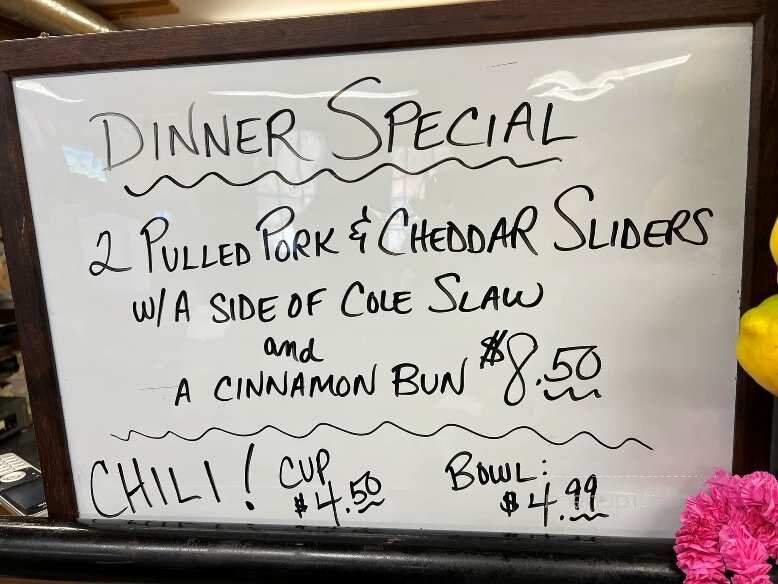 DINNER SPECIAL
2 PULLED PORK & CHEDDAR SLIDERS
W/A SIDE OF COLE SLAW
and
A CINNAMON BUN $8.50
CHILI! CUP $4.50 BOWL: $4.99